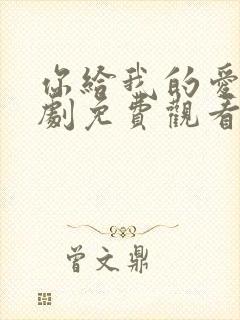 你給我的愛
劇免費觀看
曾文鼎